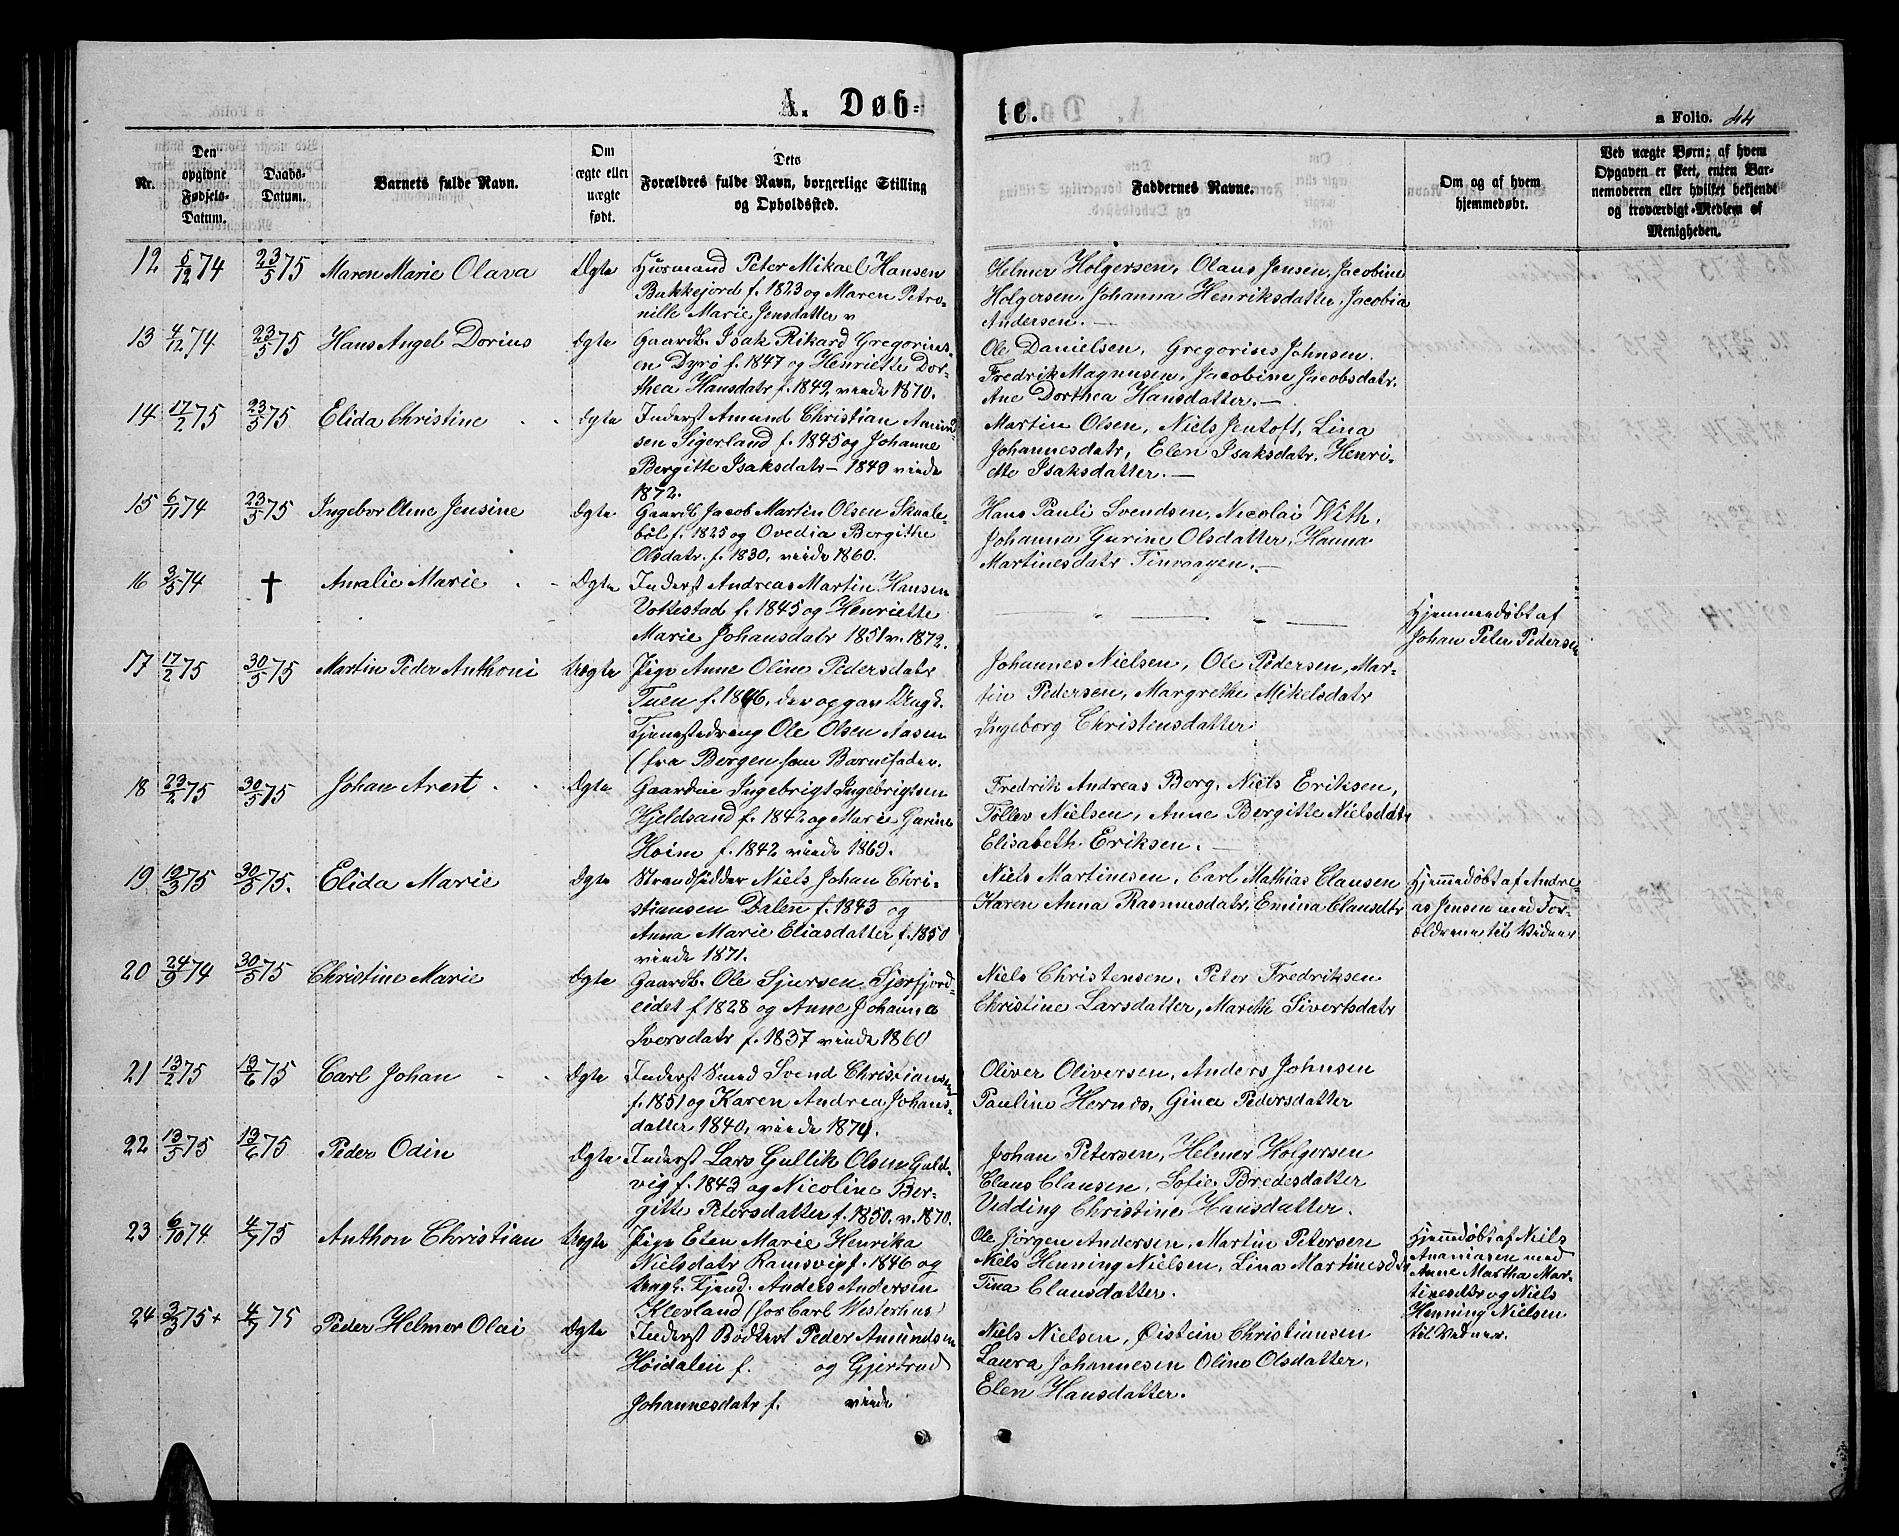 A. Døb-
te.
a Folio. 44
Nr.
Den opgivne Fødsels-Datum.
Daabs-Datum.
Barnets fulde Navn.
Om ægte eller uægte født.
Dets Forældres fulde Navn, borgerlige Stilling og Opholdssted.
Faddernes Navne.
Om og af hvem hjemmedøbt.
Ved uægte Børn; af hvem Opgaven er skeet, enten Barnemoderen eller hvilket bekjendt og troværdigt Medlem af Menigheden.
12 8/12 74 23/5 75 Maren Marie Olava Ægte
Husmand Peter Mikael Hansen
Bakkejord f. 1823 og Maren Petro-
nille Marie Jensdatter v
Helmer Holgersen, Olaus Jensen, Jacobine
Holgersen, Johanna Henriksdatter, Jacobia
Andersen.—
13 4/12 74 23/5 75 Hans Angel Dorius Ægte
Gaardb. Isak Rikard Gregorius-
en Dyrø f. 1847 og Henriette Dor-
thea Hansdatr f. 1842, viede 1870.
Ole Danielsen, Gregorius Johnsen,
Fredrik Magnusen, Jacobine Jacobsdatr,
Ane Dorthea Hansdatter.—
14 17/2 75 23/5 75 Elida Christine Ægte
Inderst Amund Christian Amund-
sen Sigerland f. 1845 og Johanne
Bergitte Isaksdatr — 1849 viede
1872.
Martin Olsen, Niels Jentoft, Lina
Johannesdatr, Elen Isaksdatr, Henri-
ette Isaksdatter.—
15 6/11 74 23/5 75 Ingebor Oline Jensine Ægte
Gaardb. Jacob Martin Olsen Skaale-
böl f. 1825 og Ovedia Bergithe
Olsdatr. f. 1830, viede 1860.
Hans Pauli Svendsen, Nicolai With,
Johanna Gurine Olsdatter, Hanna
Martinesdatr Finvaagen.—
16 3/5 74 † Amalie Marie Ægte
Inderst Andreas Martin Hansen
Vokkestad f. 1845 og Henriette
Marie Johansdatr 1851 v. 1872.
Hjemmedöbt af
Johan Peter Pedersen
17 17/2 75 30/5 75 Martin Peder Anthoni Uægte
Pige Anne Oline Pedersdatr
Tuen f. 1846, der opgav Ungk.
Tjenestedreng Ole Olsen Aasen
(fra Bergen som Barnefader.
Johannes Nielsen, Ole Pedersen, Mar-
tin Pedersen, Margrethe Mikelsdatr
Ingeborg Christensdatter
18 23/2 75 30/5 75 Johan Arent Ægte
Gaardeie Ingebrigt Ingebrigtsen
Hjeldsand f. 1842 og Marie Gurine
Hoim f. 1842 viede 1869.
Fredrik Andreas Berg, Niels Eriksen,
Töllev Nielsen, Anne Bergitte Nielsdatr
Elisabeth Eriksen.—
19 19/3 75 30/5 75. Elida Marie Ægte
Strandsidder Niels Johan Chri-
stiansen Dalen f. 1843 og
Anna Marie Eliasdatter f. 1850
viede 1871.
Niels Martinesen, Carl Mathias Clausen
Karen Anna Rasmusdatr, Emina Clausdtr
Hjemmedöbt af Andre-
as Jensen med For-
ældrene til Vidner
20 24/9 74 30/5 75 Christine Marie Ægte
Gaardb. Ole Sjursen Sjerfjord-
eidet f 1828 og Anne Johanna
Iversdatr f. 1837 viede 1860
Niels Christensen, Peter Fredriksen
Christine Larsdatter, Marith Sivertsdatr
21 13/2 75 13/6 75 Carl Johan Ægte
Inderst Smed Svend Christiansen
f. 1851 og Karen Andrea Johans-
datter 1840, viede 1874.
Oliver Oliversen, Anders Johnsen
Pauline Hernes, Gina Pedersdatter
22 13/5 75 13/6 75 Peder Odin Ægte
Inderst Lars Gullik Olsen Guld-
vig f. 1843 og Nicoline Ber-
gitte Petersdatter f. 1850. v. 1870.
Johan Petersen, Helmer Holgersen
Claus Clausen, Sofie Bredesdatter
Vedding Christine Hansdatter.
23 6/10 74 4/7 75 Anthon Christian Uægte
Pige Elen Marie Henrika
Nielsdatr Ramsvig f. 1846 og
Ungk. Tjend. Anders Andersen
(hos Carl Westerhus)
Ole Jörgen Andersen, Martin Petersen
Niels Henning Nielsen, Lina Martinesdtr
Tina Clausdatter.
Hjemmedöbt af Niels
Ananiasen med
Anne Martha Mar-
tinesdtr og Niels
Henning Nielsen
til Vidner.
24 3/3 75 + 4/7 75 Peder Helmer Olai Ægte
Inderst Bödkert Peder Amundsen
Höidalen f. og Gjertrud
Johannesdatr f. viede
Niels Nielsen, Øistein Christiansen
Laura Johannesen Oline Olsdatter,
Elen Hansdatter.